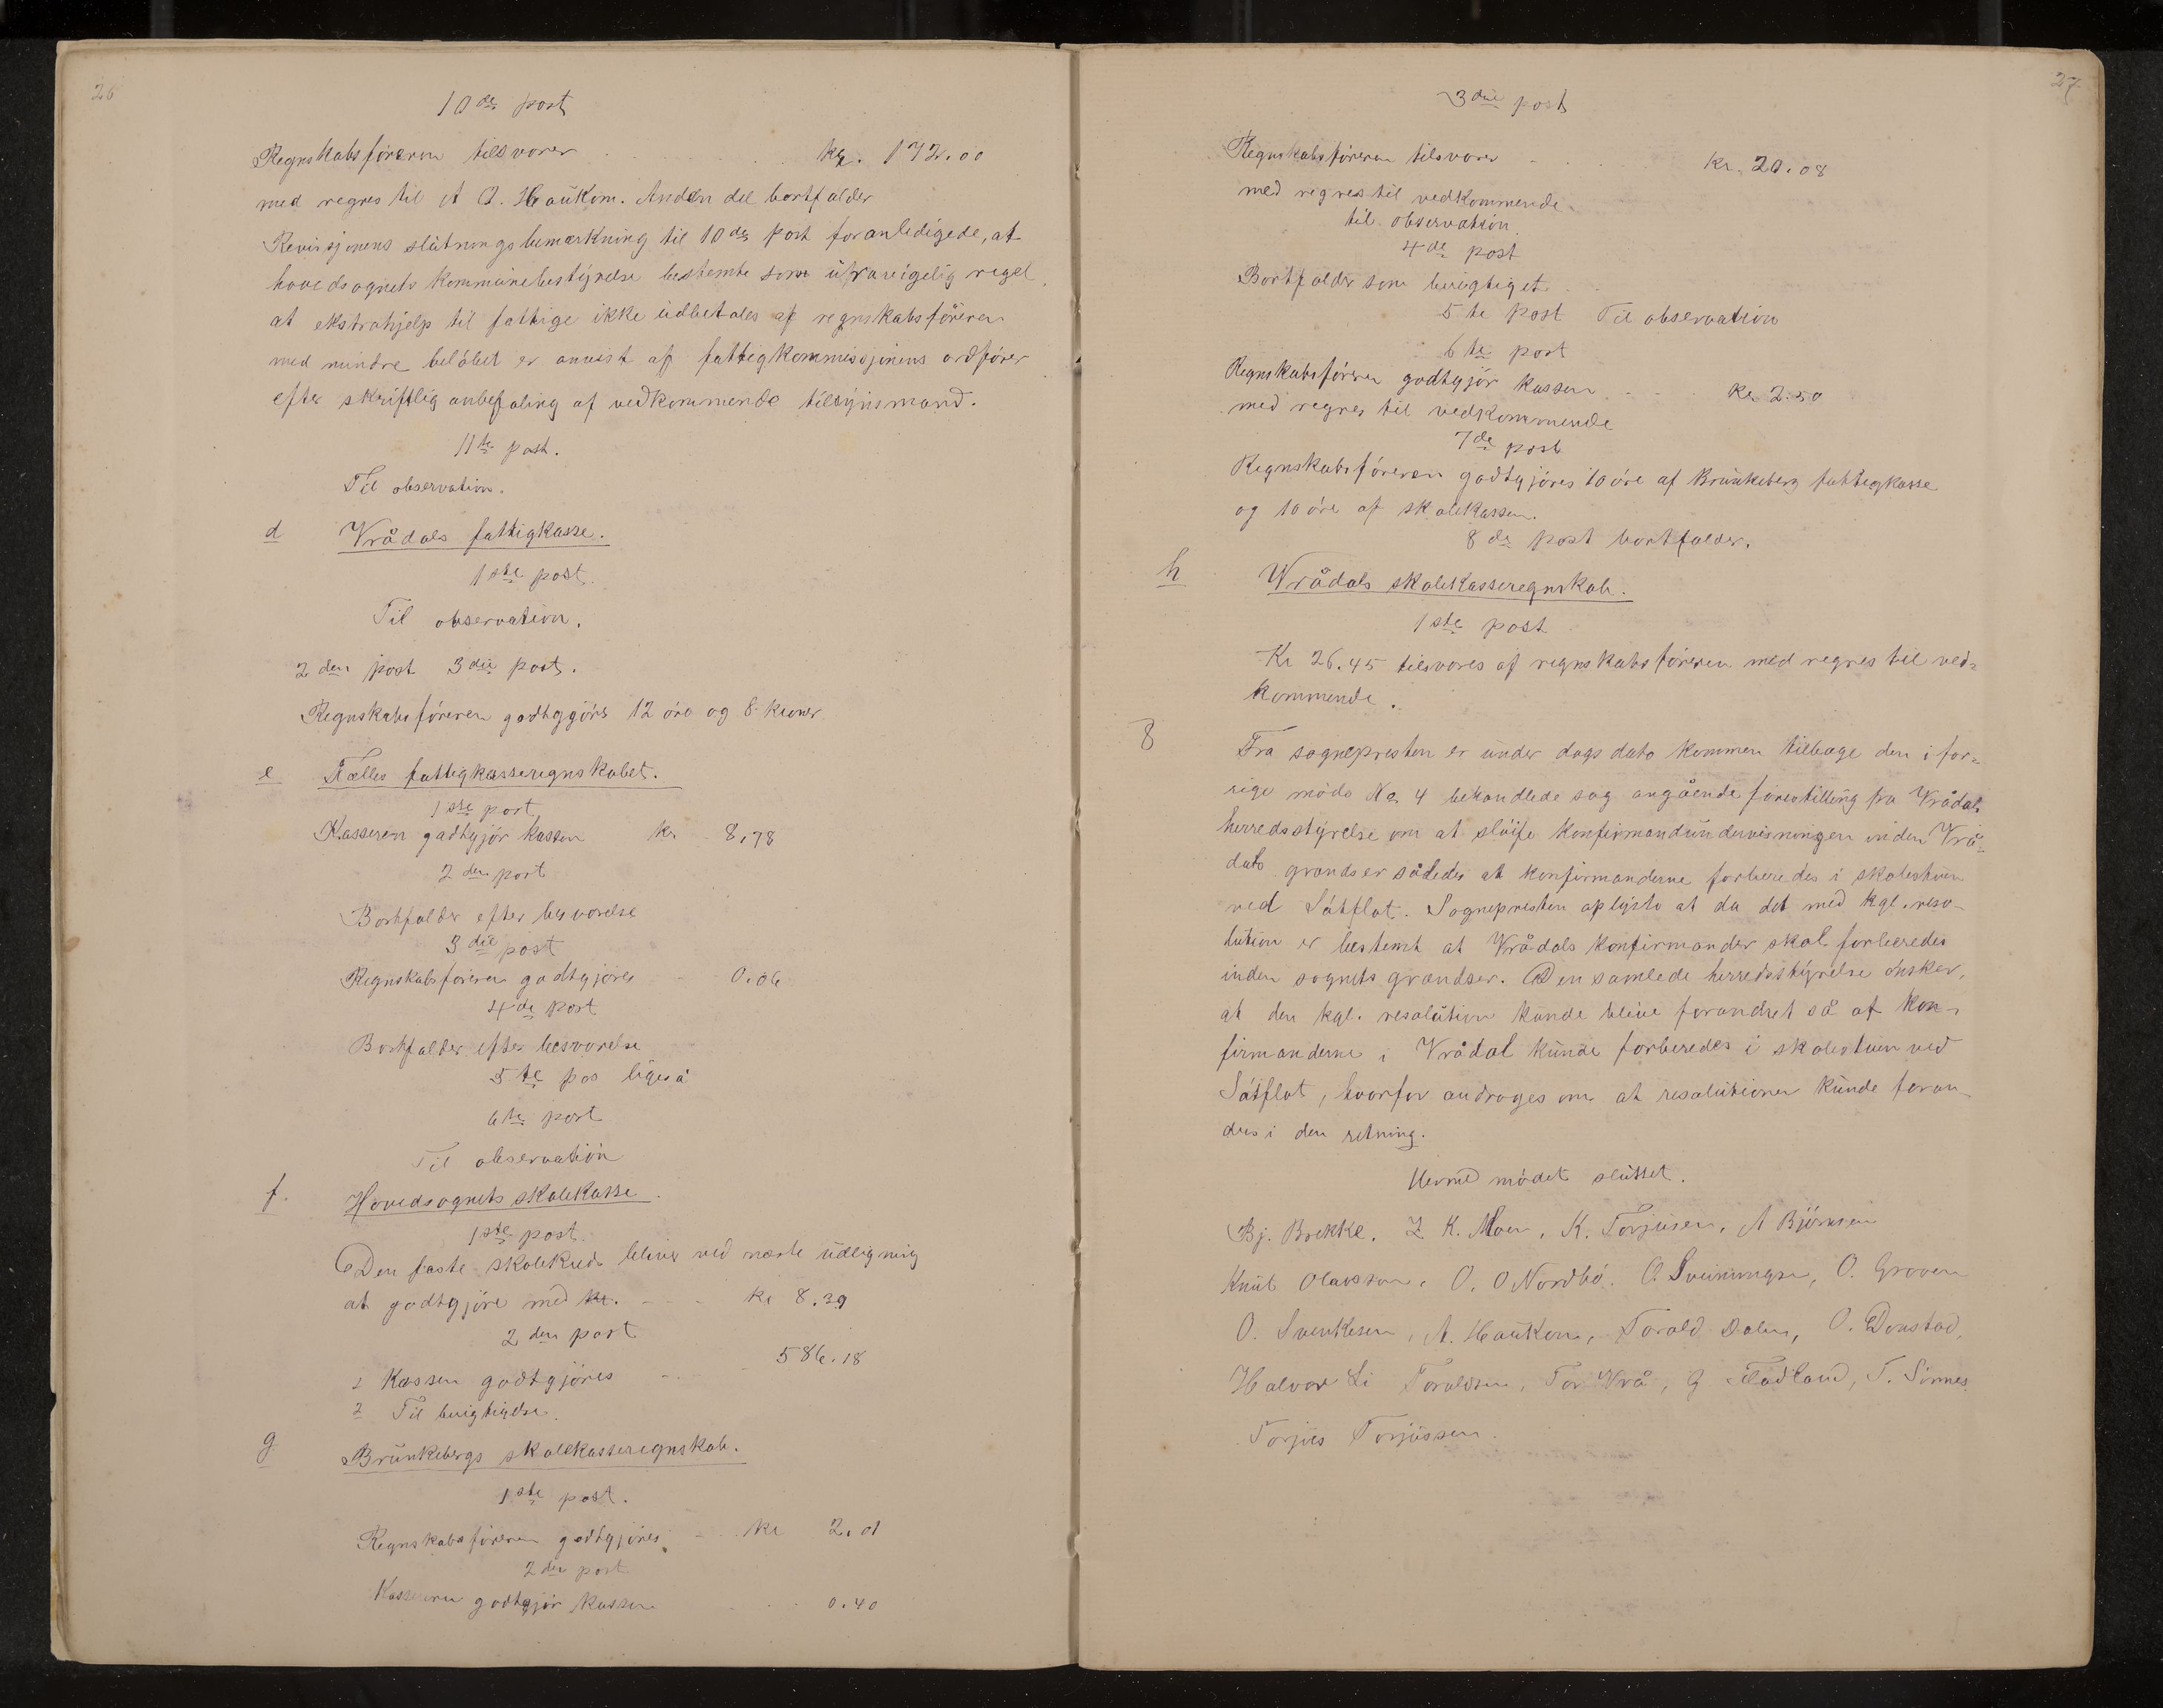 26
10de post
Regnskabsføreren tilsvarer . . . . kr. 172.00
med regres til A O. Haukom. Anden del bortfalder
Revisjonens slutningsbemærkning til 10de post foranledigede, at
hovedsognets kommunebestyrelse bestemte som ufravigelig regel,
at ekstrahjelp til fattige ikke udbetales af regnskabsføreren
med mindre beløbet er anvist af fattigkommissjonens ordfører
efter skriftlig anbefaling af vedkommende tilsynsmand.
11te post.
Til observation.
d Vrådals fattigkasse.
1ste post.
Til observation.
2den post 3die post.
Regnskabsføreren godtgjørs 12 øre og 8 kroner
e Fælles fattigkasseregnskabet.
1ste post
Kasseren godtgjør kassen kr 8,78
2den post
Bortfalder efter besvarelse
3die post
Regnskabsføreren godtgjøres - - 0.06
4de post
Bortfalder efter besvarelse
5te pos ligeså
6te post
Til observation
f. Hovedsognets skolekasse.
1ste post.
Den faste skolekreds bliver ved næste udligning
at godtgjøre med kr. - - - kr 8.39
2den post
1 Kassen godtgjøres - - - 586.18
2 Til berigtigelse.
g Brunkebergs skolekasseregnskab.
1ste post.
Regnskabsføreren godtgjøres - - kr 2,01
2den post
Kasseren godtgjør kassen - - - 0.40
27
3die post
Regnskabsføreren tilsvarer - - - kr. 20.08
med regres til vedkommende.
til observation.
4de post
Bortfalder som berigtiget. - -
5te post Til observation
6te post
Regnskabsføreren godtgjør kassen - - - kr 2.50
med regres til vedkommende
7de post
Regnskabsføreren godtgjøres 10 øre af Brunkeberg fattigkasse
og 10 øre af skolekassen.
8de post bortfalder.
h Vrådals skolekasseregnskab.
1ste post
Kr 26.45 tilsvares af regnskabsføreren med regres til ved=
kommende.
8 Fra sognepresten er under dags dato kommen tilbage den i for=
rige møde No 4 behandlede sag angående forestilling fra Vrådals
herredsstyrelse om at sløife konfirmandundervisningen inden Vrå=
dals grændser således at konfirmanderne forberedes i skolestuen
ved Såtflot. Sognepresten oplyste at da det med kgl. reso-
lution er bestemt at Vrådals konfirmander skal forberedes
inden sognets grændser. Den samlede herredsstyrelse ønsker,
at den kgl. resolution kunde blive forandret så at kon-
firmanderne i Vrådal kunde forberedes i skolestuen ved
Såtflot, hvorfor andrages om at resolutionen kunde foran-
dres i den retning.
Hermed mødet sluttet.
Bj. Bække. Z K. Moen, K. Torjusen, A Bjørnsen
Knut Olavsson, O. O Nordbø. O. Sveinungsen, O. Groven
O. Svenkesen, A. Haukom, Torald Dalen, O. Donstad,
Halvor Li Toraldsen, Tor Vrå, G Flådland, T. Sinnes
Torjus Torjussen.